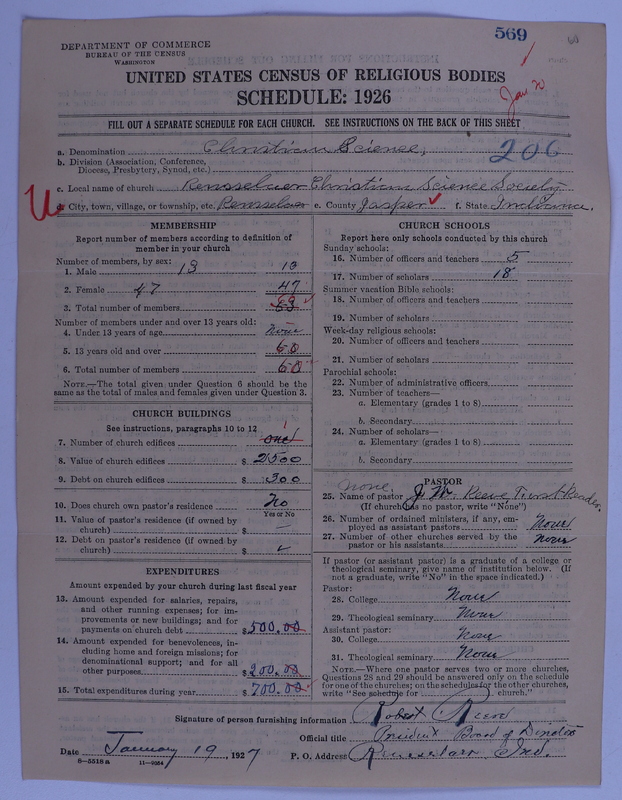 569
DEPARTMENT OF COMMERCE
BUREAU OF THE CENSUS
WASHINGTON
UNITED STATES CENSUS OF RELIGIOUS BODIES
SCHEDULE: 1926
Jan 20
FILL OUT A SEPARATE SCHEDULE FOR EACH CHURCH. SEE INSTRUCTIONS ON THE BACK OF THIS SHEET
a. Denomination Christian Science,
206
b. Division (Association, Conference, Diocese, Presbytery, Synod, etc.)
c. Local name of church Rensselaer Christian Science Society
d. City, town, village, or township, etc. Rensselaer e. County Jasper f. State Indiana.
MEMBERSHIP
Report number of members according to definition of member in your church
Number of members, by sex:
1. Male 13 13
2. Female 47 47
3. Total number of members
Number of members under and over 13 years old:
4. Under 13 years of age None
5. 13 years old and over 60
6. Total number of members 60
NOTE.—The total given under Question 6 should be the same as the total of males and females given under Question 3.
CHURCH BUILDINGS
See instructions, paragraphs 10 to 12
7. Number of church edifices one 1
8. Value of church edifices $ 2500
9. Debt on church edifices $ 300
10. Does church own pastor's residence No
Yes or No
11. Value of pastor's residence (if owned by church) $ —
12. Debt on pastor's residence (if owned by church) $
EXPENDITURES
Amount expended by your church during last fiscal year
13. Amount expended for salaries, repairs, and other running expenses; for improvements or new buildings; and for payments on church debt $ 500.00
14. Amount expended for benevolences, including home and foreign missions; for denominational support; and for all other purposes $ 200.00
15. Total expenditures during year $ 700.00
CHURCH SCHOOLS
Report here only schools conducted by this church
Sunday schools:
16. Number of officers and teachers 5
17. Number of scholars 18
Summer vacation Bible schools:
18. Number of officers and teachers
19. Number of scholars
Week-day religious schools:
20. Number of officers and teachers
21. Number of scholars
Parochial schools:
22. Number of administrative officers
23. Number of teachers—
a. Elementary (grades 1 to 8)
b. Secondary
24. Number of scholars—
a. Elementary (grades 1 to 8)
b. Secondary
PASTOR
none
25. Name of pastor J. W. Reeve First Reader.
(If church has no pastor, write "None")
26. Number of ordained ministers, if any, employed as assistant pastors None
27. Number of other churches served by the pastor or his assistants None
If pastor (or assistant pastor) is a graduate of a college or theological seminary, give name of institution below. (If not a graduate, write "No" in the space indicated.)
Pastor:
28. College None
29. Theological seminary None
Assistant pastor:
30. College None
31. Theological seminary None
NOTE.—Where one pastor serves two or more churches, Questions 28 and 29 should be answered only on the schedule for one of the churches; on the schedules for the other churches, write "See schedule for church."
Signature of person furnishing information Robert Reeve
Official title President Board of Directors
Date January 19, 1927 P. O. Address Rensselaer Ind.
8—5518a 11—9054